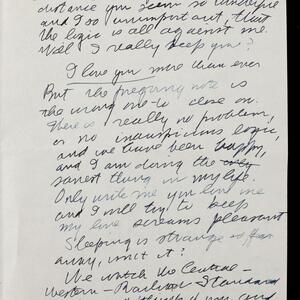 distance you seem so wonderful
and I so unimportant, that
the logic is all against me.
Will I really keep you?
I love you more than ever
But the foregoing note is
the wrong one to close on.
There is really no problem,
or no inauspicious logic,
and we have been happy,
and I am doing the only
sanest thing in my life.
Only write me you love me
and I will try to keep
my love screams pleasant
Sleeping is strange so far
away, isn't it?
We watch the Central-
Western - Railroad - Standard